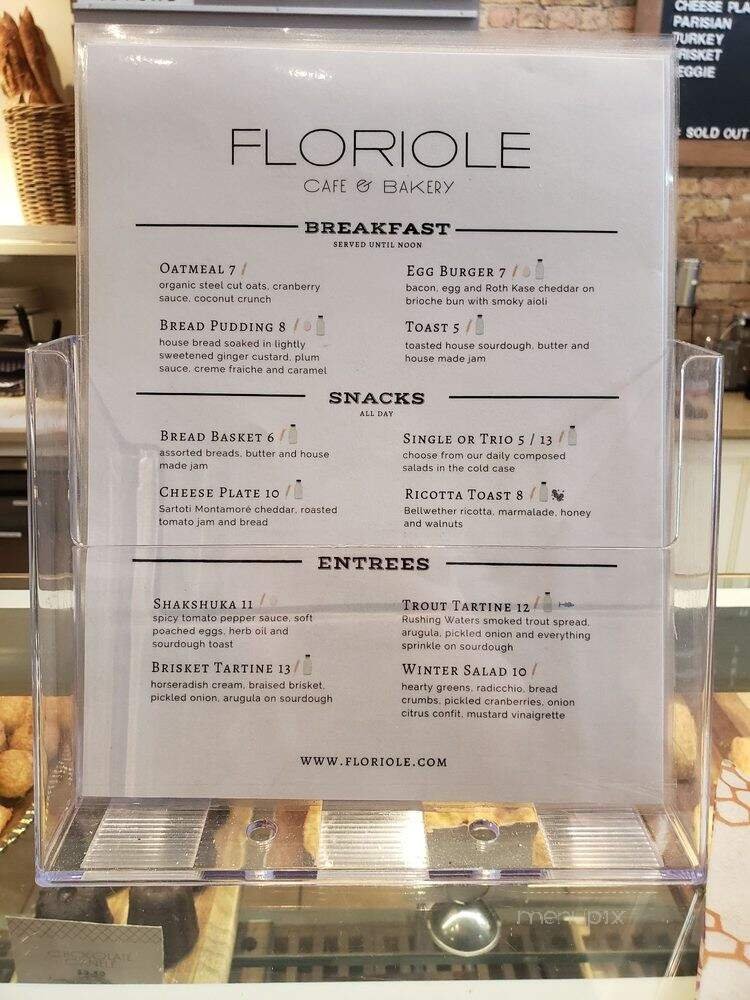 CHEESE PLA
PARISIAN
TURKEY
BRISKET
EGGIE
SOLD OUT
FLORIOLE
CAFE & BAKERY
BREAKFAST
SERVED UNTIL NOON
OATMEAL 7
organic steel cut oats, cranberry
sauce, coconut crunch
BREAD PUDDING 8
house bread soaked in lightly
sweetened ginger custard, plum
sauce, creme fraiche and caramel
EGG BURGER 7
bacon, egg and Roth Kase cheddar on
brioche bun with smoky aioli
TOAST 5
toasted house sourdough, butter and
house made jam
SNACKS
ALL DAY
BREAD BASKET 6
assorted breads, butter and house
made jam
CHEESE PLATE 10
Sartoti Montamoré cheddar, roasted
tomato jam and bread
SINGLE OR TRIO 5 / 13
choose from our daily composed
salads in the cold case
RICOTTA TOAST 8
Bellwether ricotta, marmalade, honey
and walnuts
ENTREES
SHAKSHUKA 11
spicy tomato pepper sauce, soft
poached eggs, herb oil and
sourdough toast
BRISKET TARTINE 13
horseradish cream, braised brisket,
pickled onion, arugula on sourdough
TROUT TARTINE 12
Rushing Waters smoked trout spread,
arugula, pickled onion and everything
sprinkle on sourdough
WINTER SALAD 10
hearty greens, radicchio, bread
crumbs, pickled cranberries, onion
citrus confit, mustard vinaigrette
WWW.FLORIOLE.COM
menupix
CHOCOLATE